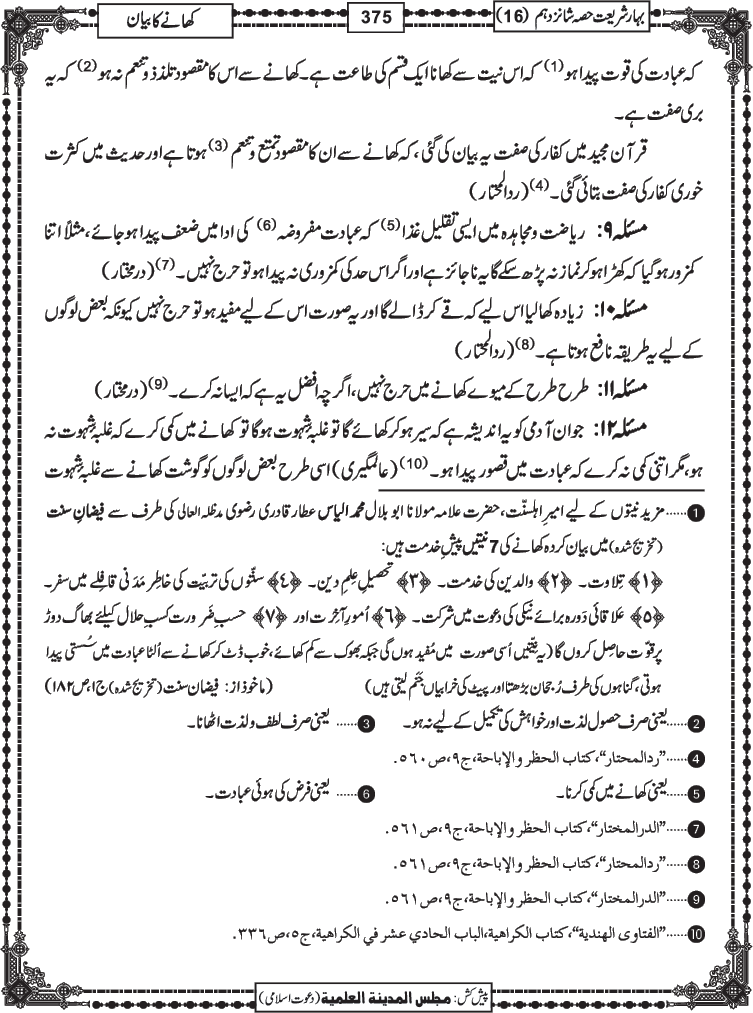 بہارِ شریعت حصہ شانزدہم (16)
375
کھانے کا بیان
کہ عبادت کی قوت پیدا ہو (1) کہ اس نیت سے کھانا ایک قسم کی طاعت ہے۔ کھانے سے اس کا مقصود تلذذ و تنعم نہ ہو (2) کہ یہ
بری صفت ہے۔
قرآن مجید میں کفار کی صفت یہ بیان کی گئی، کہ کھانے سے ان کا مقصود تمتع و تنعم (3) ہوتا ہے اور حدیث میں کثرت
خوری کفار کی صفت بتائی گئی۔ (4) (ردالمحتار)
مسئلہ ۹: ریاضت و مجاہدہ میں ایسی تقلیل غذا (5) کہ عبادت مفروضہ (6) کی ادا میں ضعف پیدا ہو جائے، مثلاً اتنا
کمزور ہو گیا کہ کھڑا ہو کر نماز نہ پڑھ سکے گا یہ ناجائز ہے اور اگر اس حد کی کمزوری نہ پیدا ہو تو حرج نہیں۔ (7) (درمختار)
مسئلہ ۱۰: زیادہ کھا لیا اس لیے کہ قے کر ڈالے گا اور یہ صورت اس کے لیے مفید ہو تو حرج نہیں کیونکہ بعض لوگوں
کے لیے یہ طریقہ نافع ہوتا ہے۔ (8) (ردالمحتار)
مسئلہ ۱۱: طرح طرح کے میوے کھانے میں حرج نہیں، اگرچہ افضل یہ ہے کہ ایسا نہ کرے۔ (9) (درمختار)
مسئلہ ۱۲: جوان آدمی کو یہ اندیشہ ہے کہ سیر ہو کر کھائے گا تو غلبۂ شہوت ہوگا تو کھانے میں کمی کرے کہ غلبۂ شہوت نہ
ہو، مگر اتنی کمی نہ کرے کہ عبادت میں قصور پیدا ہو۔ (10) (عالمگیری) اسی طرح بعض لوگوں کو گوشت کھانے سے غلبۂ شہوت
1 ...... مزید نیتوں کے لیے امیرِ اہلسنّت، حضرت علامہ مولانا ابو بلال محمد الیاس عطار قادری رضوی مدظلہ العالی کی طرف سے فیضانِ سنت
(تخریج شدہ) میں بیان کردہ کھانے کی 7 نیتیں پیشِ خدمت ہیں:
﴿۱﴾ تِلاوت۔ ﴿۲﴾ والدین کی خدمت۔ ﴿۳﴾ تحصیلِ علمِ دین۔ ﴿۴﴾ سنّتوں کی تربیّت کی خاطِر مَدَنی قافلے میں سفر۔
﴿۵﴾ عَلاقائی دَورہ برائے نیکی کی دعوت میں شرکت۔ ﴿۶﴾ اُمورِ آخِرت اور ﴿۷﴾ حسبِ ضَرورت کسبِ حلال کیلئے بھاگ دوڑ
پر قوّت حاصِل کروں گا (یہ نیّتیں اُسی صورت میں مُفید ہوں گی جبکہ بھوک سے کم کھائے، خوب ڈٹ کر کھانے سے اُلٹا عبادت میں سُستی پیدا
ہوتی، گناہوں کی طرف رُجحان بڑھتا اور پیٹ کی خرابیاں جَنَم لیتی ہیں) (ماخوذ از: فیضانِ سنت (تخریج شدہ) ج۱، ص ۱۸۲)
2 ...... یعنی صرف حصول لذت اور خواہش کی تکمیل کے لیے نہ ہو۔ 3 ...... یعنی صرف لطف و لذت اٹھانا۔
4 ......"ردالمحتار"، کتاب الحظر والإباحة، ج۹، ص ۵۶۰.
5 ...... یعنی کھانے میں کمی کرنا۔ 6 ...... یعنی فرض کی ہوئی عبادت۔
7 ......"الدرالمختار"، کتاب الحظر والإباحة، ج۹، ص ۵۶۱.
8 ......"ردالمحتار"، کتاب الحظر والإباحة، ج۹، ص ۵۶۱.
9 ......"الدرالمختار"، کتاب الحظر والإباحة، ج۹، ص ۵۶۱.
10 ......"الفتاوى الهندية"، كتاب الكراهية، الباب الحادي عشر في الكراهية، ج۵، ص ۳۳۶.
پیش کش: مجلس المدينة العلمية (دعوت اسلامی)